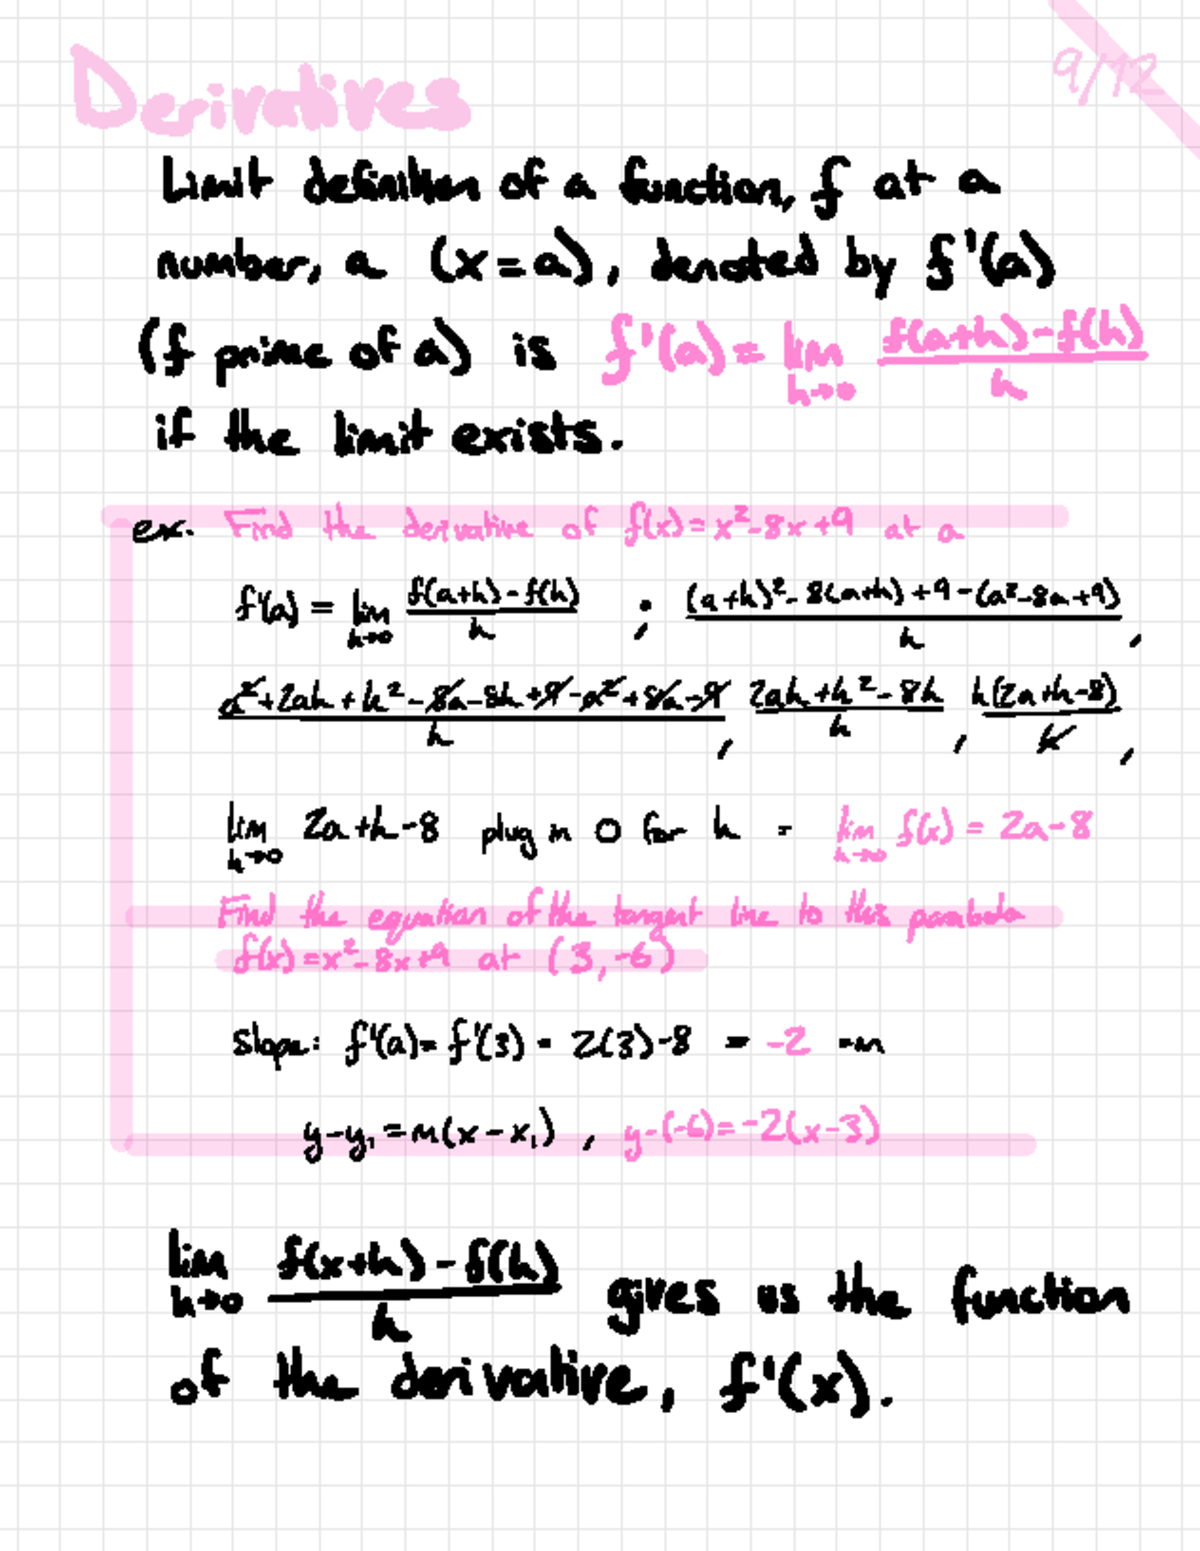 Derivatives
9/12
Limit definition of a function, f at a
number, a (x=a), denoted by f'(a)
(f prime of a) is f'(a) = lim h→0 (f(a+h)-f(h))/h
if the limit exists.
ex. Find the derivative of f(x)=x²-8x+9 at a
f'(a) = lim h→0 (f(a+h)-f(h))/h ; ((a+h)²-8(a+h)+9-(a²-8a+9))/h ,
(a²+2ah+h²-8a-8h+9-a²+8a-9)/h , (2ah+h²-8h)/h , h(2a+h-8)/h ,
lim h→0 2a+h-8 plug in 0 for h = lim h→0 f(x) = 2a-8
Find the equation of the tangent line to this parabola
f(x)=x²-8x+9 at (3,-6)
Slope: f'(a)= f'(3) = 2(3)-8 = -2 =m
y-y₁=m(x-x₁) , y-(-6)=-2(x-3)
lim h→0 (f(x+h)-f(h))/h gives us the function
of the derivative, f'(x).